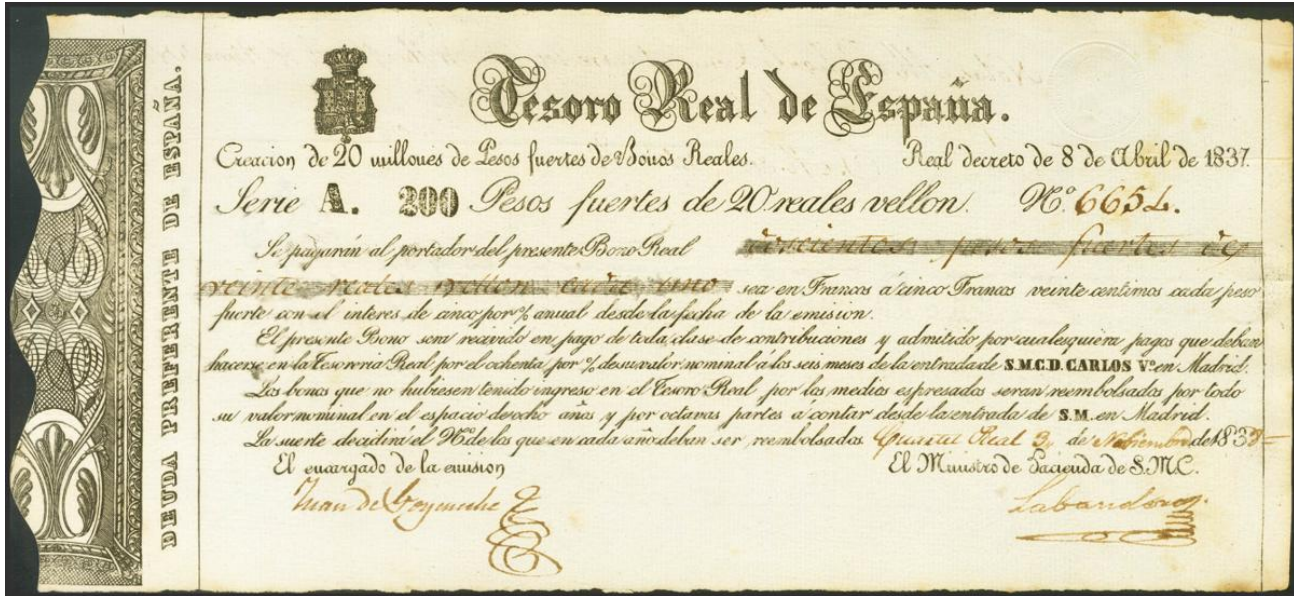 DEUDA PREFERENTE DE ESPAÑA.
Tesoro Real de España.
Creacion de 20 millones de Pesos fuertes de Bonos Reales. Real decreto de 8 de Abril de 1837.
Serie A. 200 Pesos fuertes de 20 reales vellon. Nº 6654.
Se pagarán al portador del presente Bono Real doscientos pesos fuertes de
veinte reales vellon cada uno sea en Francos á cinco Francos veinte centimos cada peso
fuerte con el interes de cinco por % anual desde la fecha de la emision.
El presente Bono será recivido en pago de toda clase de contribuciones y admitido por cualesquiera pagos que deban
hacerse en la Tesoreria Real por el ochenta por % de su valor nominal á los seis meses de la entrada de S.M.C.D. CARLOS Vº en Madrid.
Los bonos que no hubiesen tenido ingreso en el Tesoro Real por los medios espresados seran reembolsados por todo
su valor nominal en el espacio de ocho años y por octavas partes a contar desde la entrada de S.M. en Madrid.
La suerte decidirá el Nº de los que en cada año deban ser reembolsados Cuartel Real 3 de Nobiembre de 1838
El encargado de la emision El Ministro de Hacienda de S.M.C.
Juan de Goyeneche Labandero